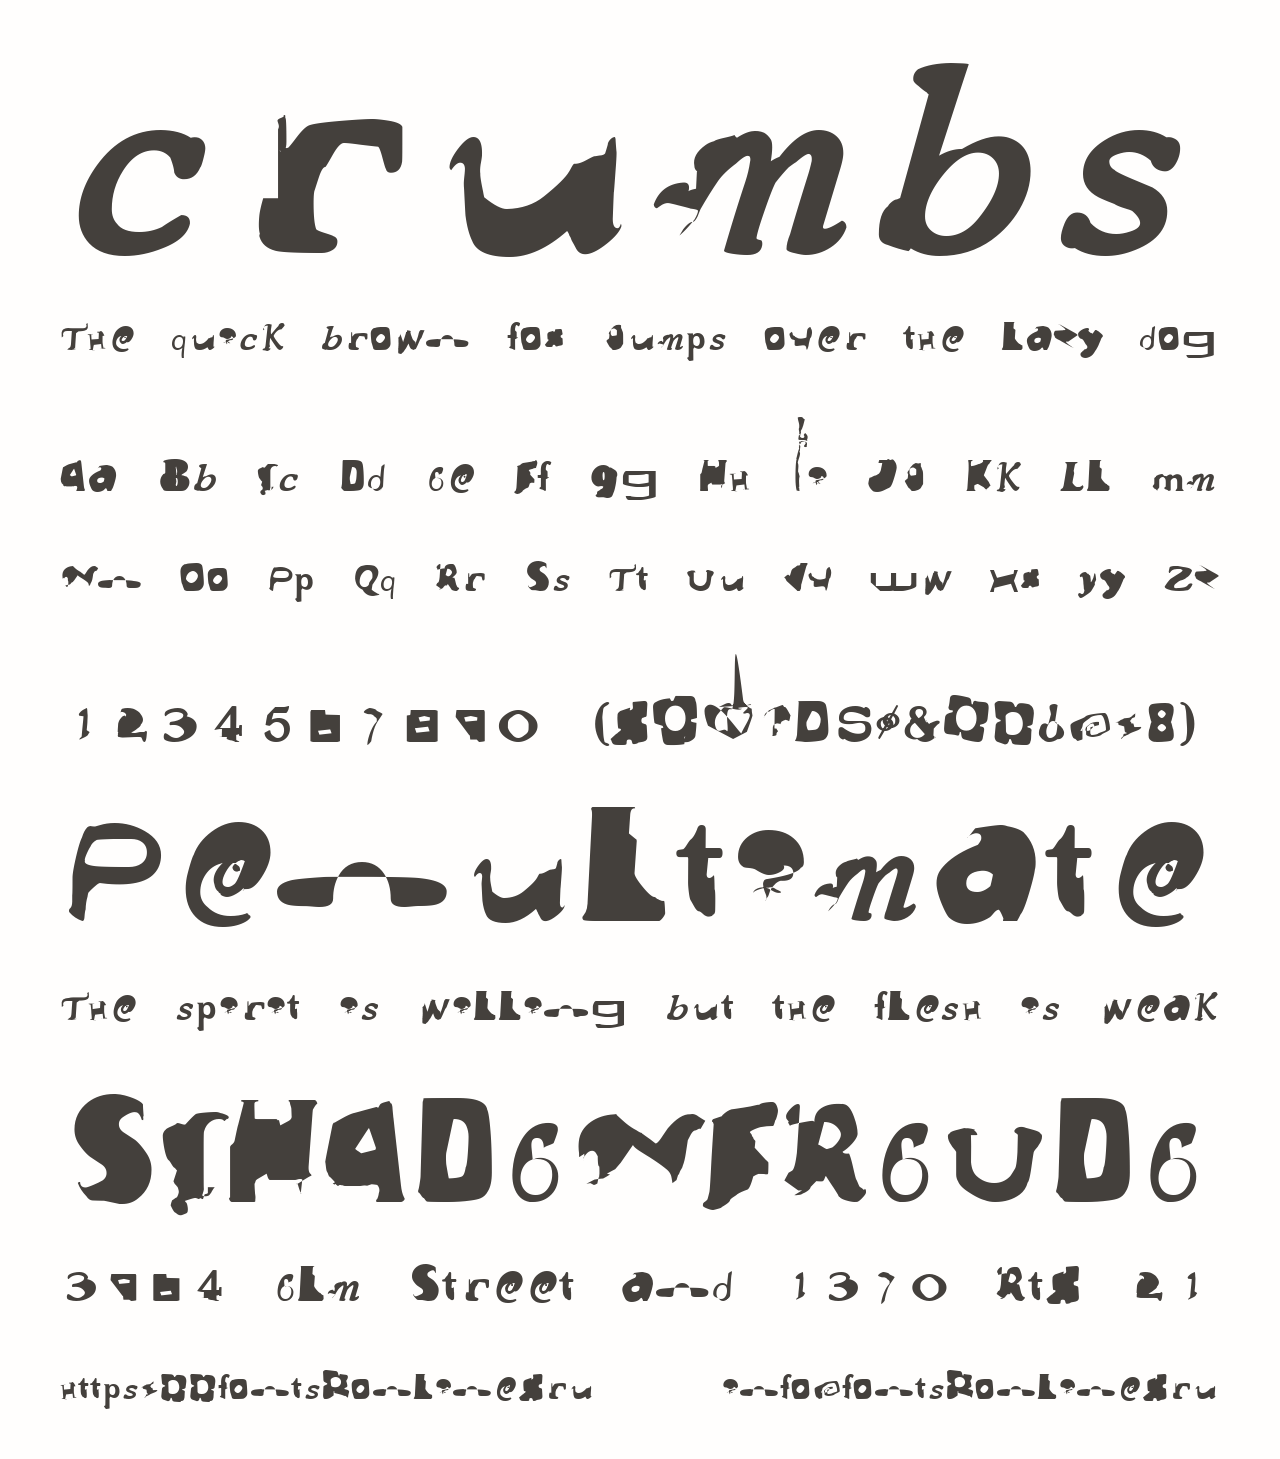 crumbs
The quicK brown fox jumps over the Lazy dog
Aa Bb Cc Dd Ee Ff gg HH Ii Jj KK LL mm
Nn Oo Pp Qq Rr Ss Tt Uu Vv Ww Xx yy Zz
1234567890
PenuLtimate
The spirit is wiLLing but the fLesH is weaK
SCHADENFREUDE
3964 ELm Street and 1370 Rt. 21
Https://fonts-onLine.ru info@fonts-onLine.ru